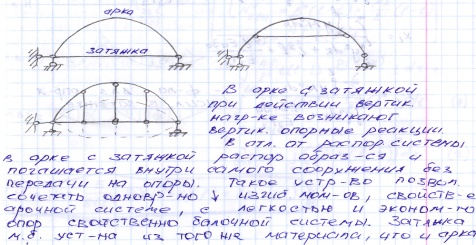 арка
затяжка
В арке с затяжкой
при действии вертик.
нагр-ке возникают
вертик. опорные реакции.
В отл. от распор. системы
в арке с затяжкой распор образ-ся и
погашается внутри самого сооружения без
передачи на опоры. Такое устр-во позвол.
сочетать одновр-но ↓ изгиб мом-ов, свойств-е
арочной системе, с легкостью и эконом-ю
опор свойственно балочной системы. Затяжка
м.б. уст-на из того же материала, что и арка